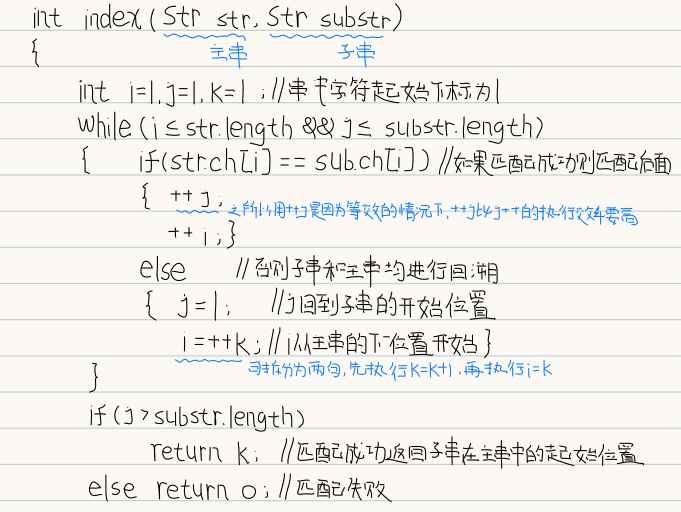 int index(Str str, Str substr)
主串 子串
{
int i=1,j=1,k=1;//串中字符起始下标为1
while(i≤str.length && j≤ substr.length)
{ if(str.ch[i]==sub.ch[i])//如果匹配成功则匹配后面
{ ++j; 之所以用++j是因为等效的情况下,++j比j++的执行效率要高
++i;}
else //否则子串和主串均进行回溯
{ j=1; //j回到子串的开始位置
i=++k;//i从主串的下一位置开始}
可拆分为两句,先执行k=k+1,再执行i=k
}
if(j>substr.length)
return k; //匹配成功返回子串在主串中的起始位置
else return 0;//匹配失败